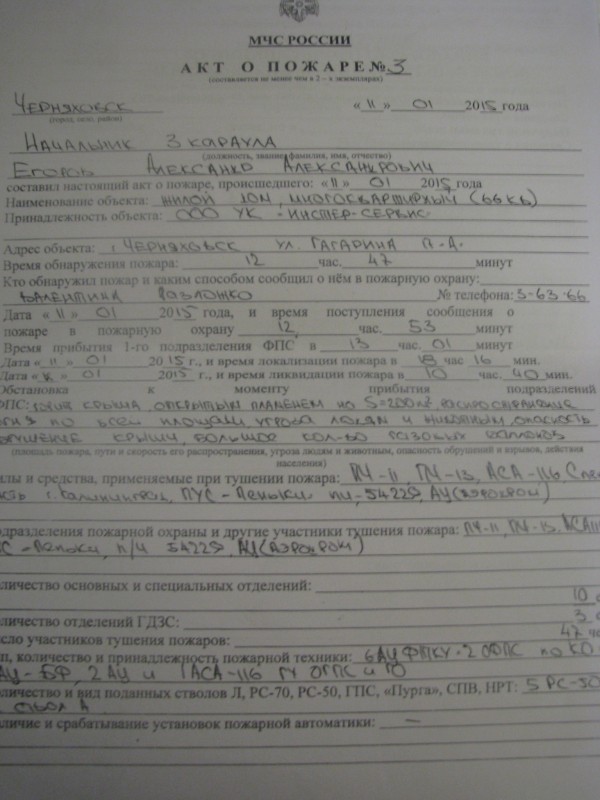 МЧС РОССИИ
АКТ О ПОЖАРЕ № 3
(составляется не менее чем в 2 – х экземплярах)
Черняховск « 11 » 01 2015 года
(город, село, район)
Начальник 3 караула
(должность, звание, фамилия, имя, отчество)
Егоров Александр Александрович
составил настоящий акт о пожаре, происшедшего: « 11 » 01 2015 года
Наименование объекта: жилой дом, многоквартирный (66 кв)
Принадлежность объекта: ООО УК "Инстер-Сервис"
Адрес объекта: г. Черняховск ул. Гагарина
Время обнаружения пожара: 12 час. 47 минут
Кто обнаружил пожар и каким способом сообщил о нём в пожарную охрану:
Валентина № телефона: 3-63-66
Дата « 11 » 01 2015 года, и время поступления сообщения о
пожаре в пожарную охрану 12 час. 53 минут
Время прибытия 1-го подразделения ФПС в 13 час. 01 минут
Дата « 11 » 01 2015 г., и время локализации пожара в 18 час 16 мин.
Дата « » 01 2015 г., и время ликвидации пожара в 10 час. 40 мин.
Обстановка к моменту прибытия подразделений
ФПС: крыша открытым пламенем на S=200м², распространение
огня по всей площади угроза людям и животным, опасность
обрушение крыши, большое кол-во газовых баллонов
(площадь пожара, пути и скорость его распространения, угроза людям и животным, опасность обрушений и взрывов, действия
населения)
силы и средства, применяемые при тушении пожара: ПЧ-11, ПЧ-13, АСА-116
часть г. Калининград, ПУС - Пеньки, 54229, АЦ (аэродром)
подразделения пожарной охраны и другие участники тушения пожара: ПЧ-11, ПЧ-13, АСА 11
- Пеньки, п/ч 54229, АЦ (аэродром)
количество основных и специальных отделений: 10
количество отделений ГДЗС: 3
число участников тушения пожаров: 47 ч
тип, количество и принадлежность пожарной техники: 6 АЦ ФГКУ "2 ОФПС по КО
АЦ - БФ, 2 АЦ и 1 АСА-116 ГУ ОГПС и ГО
количество и вид поданных стволов Л, РС-70, РС-50, ГПС, «Пурга», СПВ, НРТ: 5 РС-50
ствол А
наличие и срабатывание установок пожарной автоматики: —